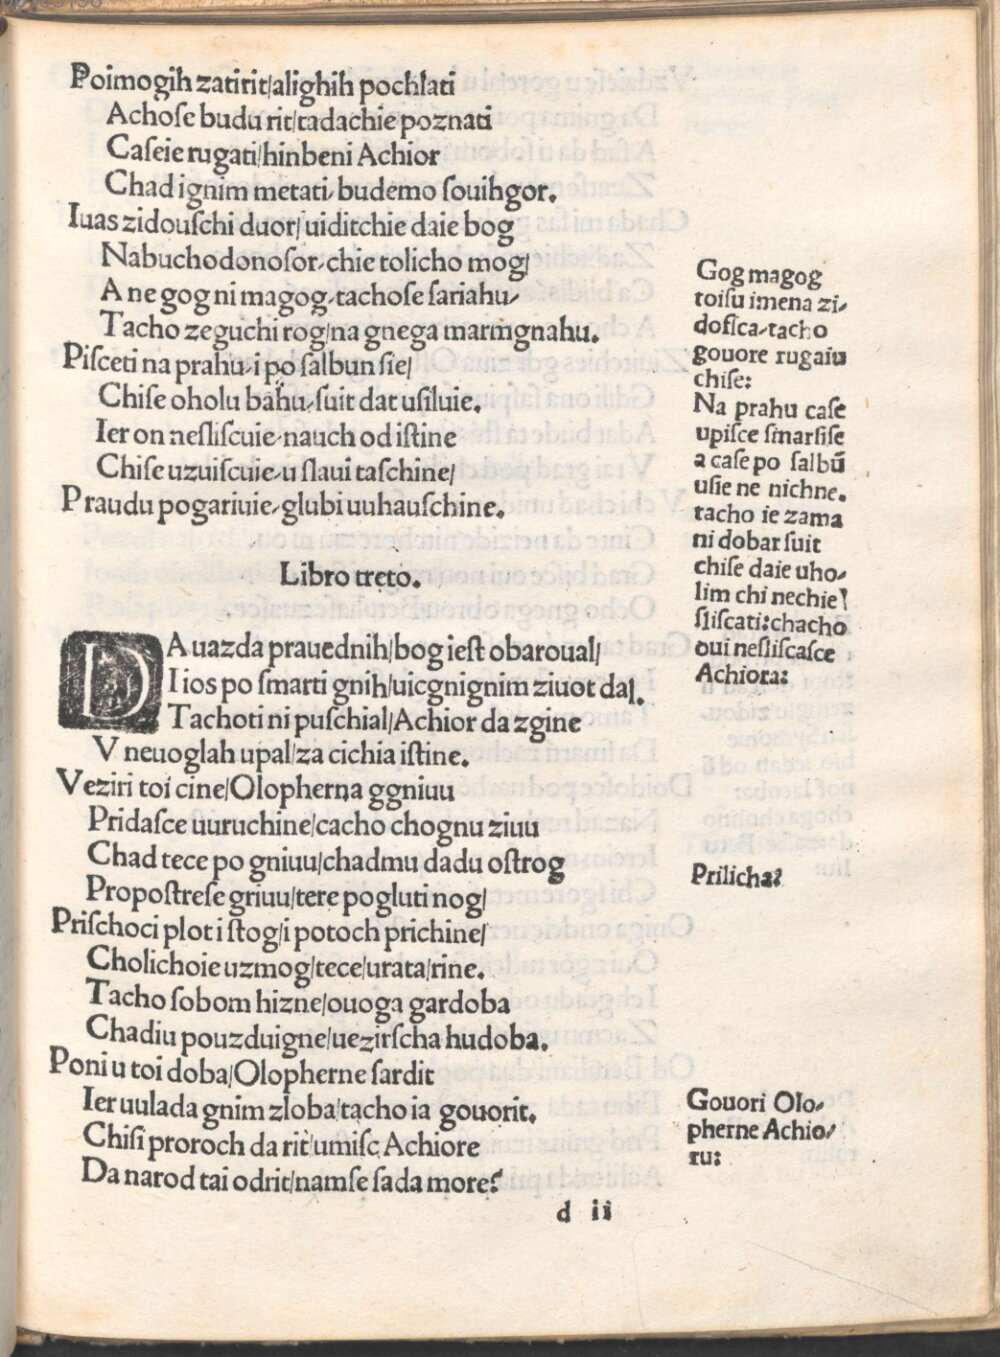 Poimogih zatirit/alighih pochlati
Achoſe budu rit/tadachie poznati
Caſeie rugati/hinbeni Achior
Chad ignim metati, budemo ſouihgor.
Iuas zidouſchi duor/uiditchie daie bog
Nabuchodonoſor, chie tolicho mog/
A ne gog ni magog, tachoſe ſariahu,
Tacho zeguchi rog/na gnega marmgnahu.
Piſceti na prahu, i po ſalbun ſie/
Chiſe oholu bahu, ſuit dat uſiluie.
Ier on neſliſcuie, nauch od iſtine
Chiſe uzuiſcuie, u ſlaui taſchine/
Praudu pogariuie, glubi uuhauſchine.
Libro treto.
DA uazda prauednih/bog ieſt obaroual/
I ios po ſmarti gnih/uicgnignim ziuot dal.
Tachoti ni puſchial/Achior da zgine
V neuoglah upal/za cichia iſtine.
Veziri toi cine/Olopherna ggniuu
Pridaſce uuruchine/cacho chognu ziuu
Chad tece po gniuu/chadmu dadu oſtrog
Propoſtreſe griuu/tere pogluti nog/
Priſchoci plot i ſtog/i potoch prichine/
Cholichoie uzmog/tece/urata/rine.
Tacho ſobom hizne/ouoga gardoba
Chadiu pouzduigne/uezirſcha hudoba.
Poni u toi doba/Olopherne ſardit
Ier uulada gnim zloba/tacho ia gouorit.
Chiſi proroch da rit/umiſc Achiore
Da narod tai odrit/namſe ſada more?
d ii
Gog magog
toiſu imena zi,
doſſca, tacho
gouore rugaiu
chiſe:
Na prahu caſe
upiſce ſmarſiſe
a caſe po ſalbū
uſie ne nichne.
tacho ie zama
ni dobar ſuit
chiſe daie uho,
lim chi nechie
ſliſcati: chacho
oui neſliſcaſce
Achiora:
Prilicha:
Gouori Olo,
pherne Achio,
ru: